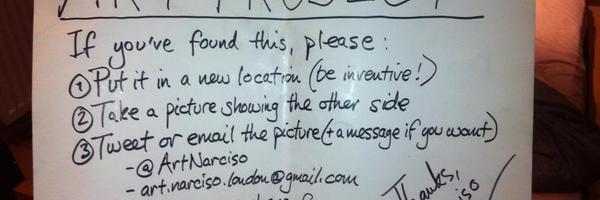 ART PROJECT
If you've found this, please:
① Put it in a new location (be inventive!)
② Take a picture showing the other side
③ Tweet or email the picture (+ a message if you want)
- @ArtNarciso
- art.narciso.london@gmail.com
Thanks,